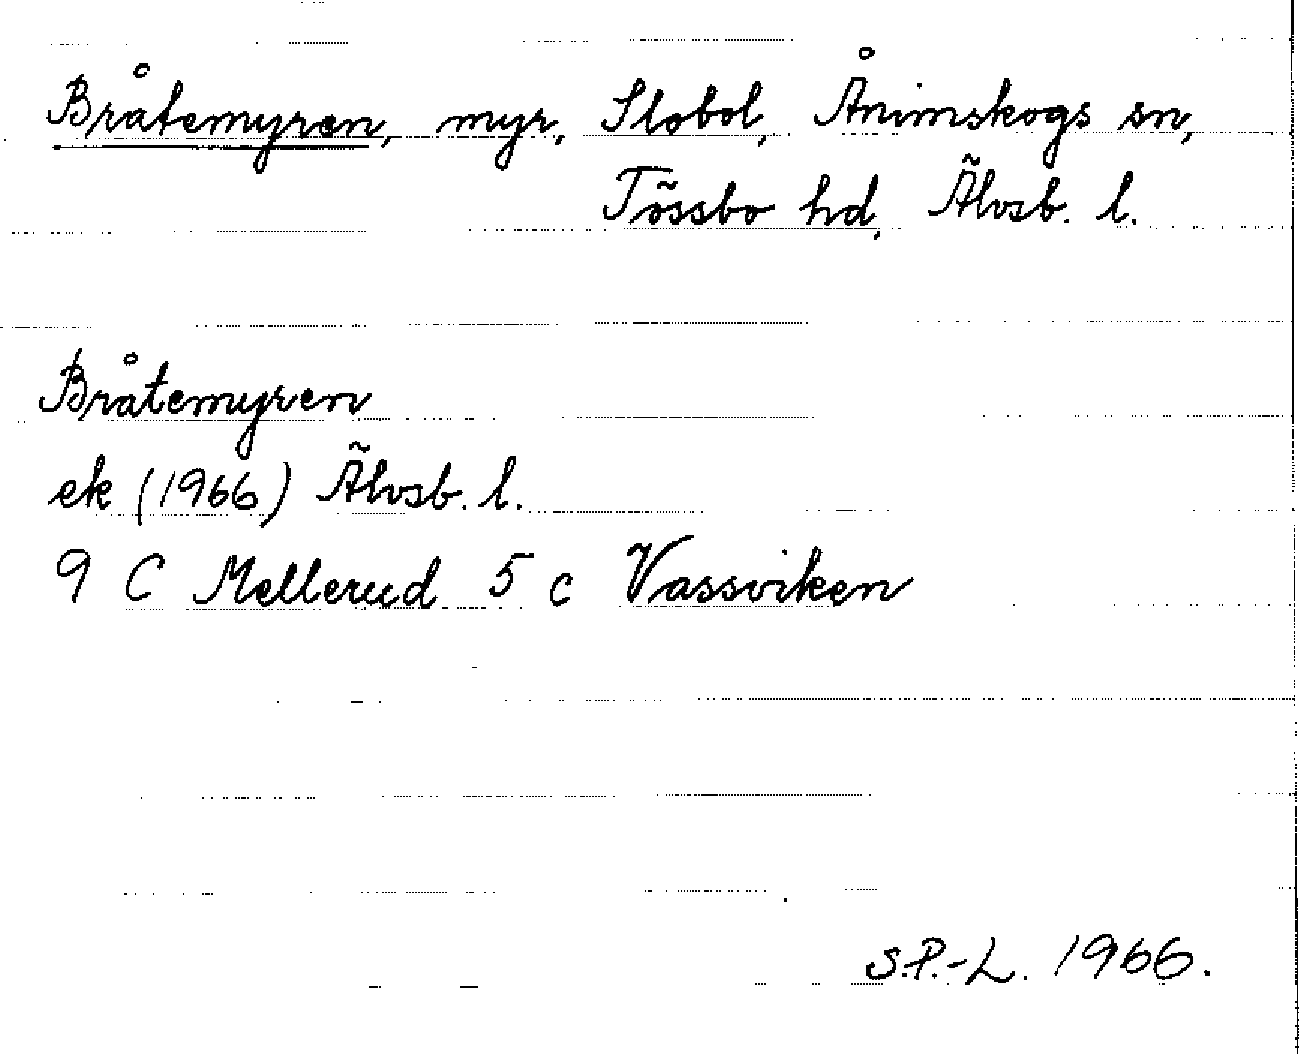 Bråtemyren, myr, Slobol, Ånimskogs sn,
Tössbo hd, Älvsb. l.
Bråtemyren
ek (1966) Älvsb. l.
9 C Mellerud 5 c Vassviken
S.P.-L. 1966.